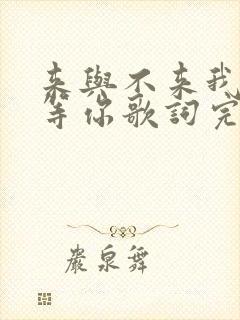 来與不来我
等你歌詞完
嚴泉舞